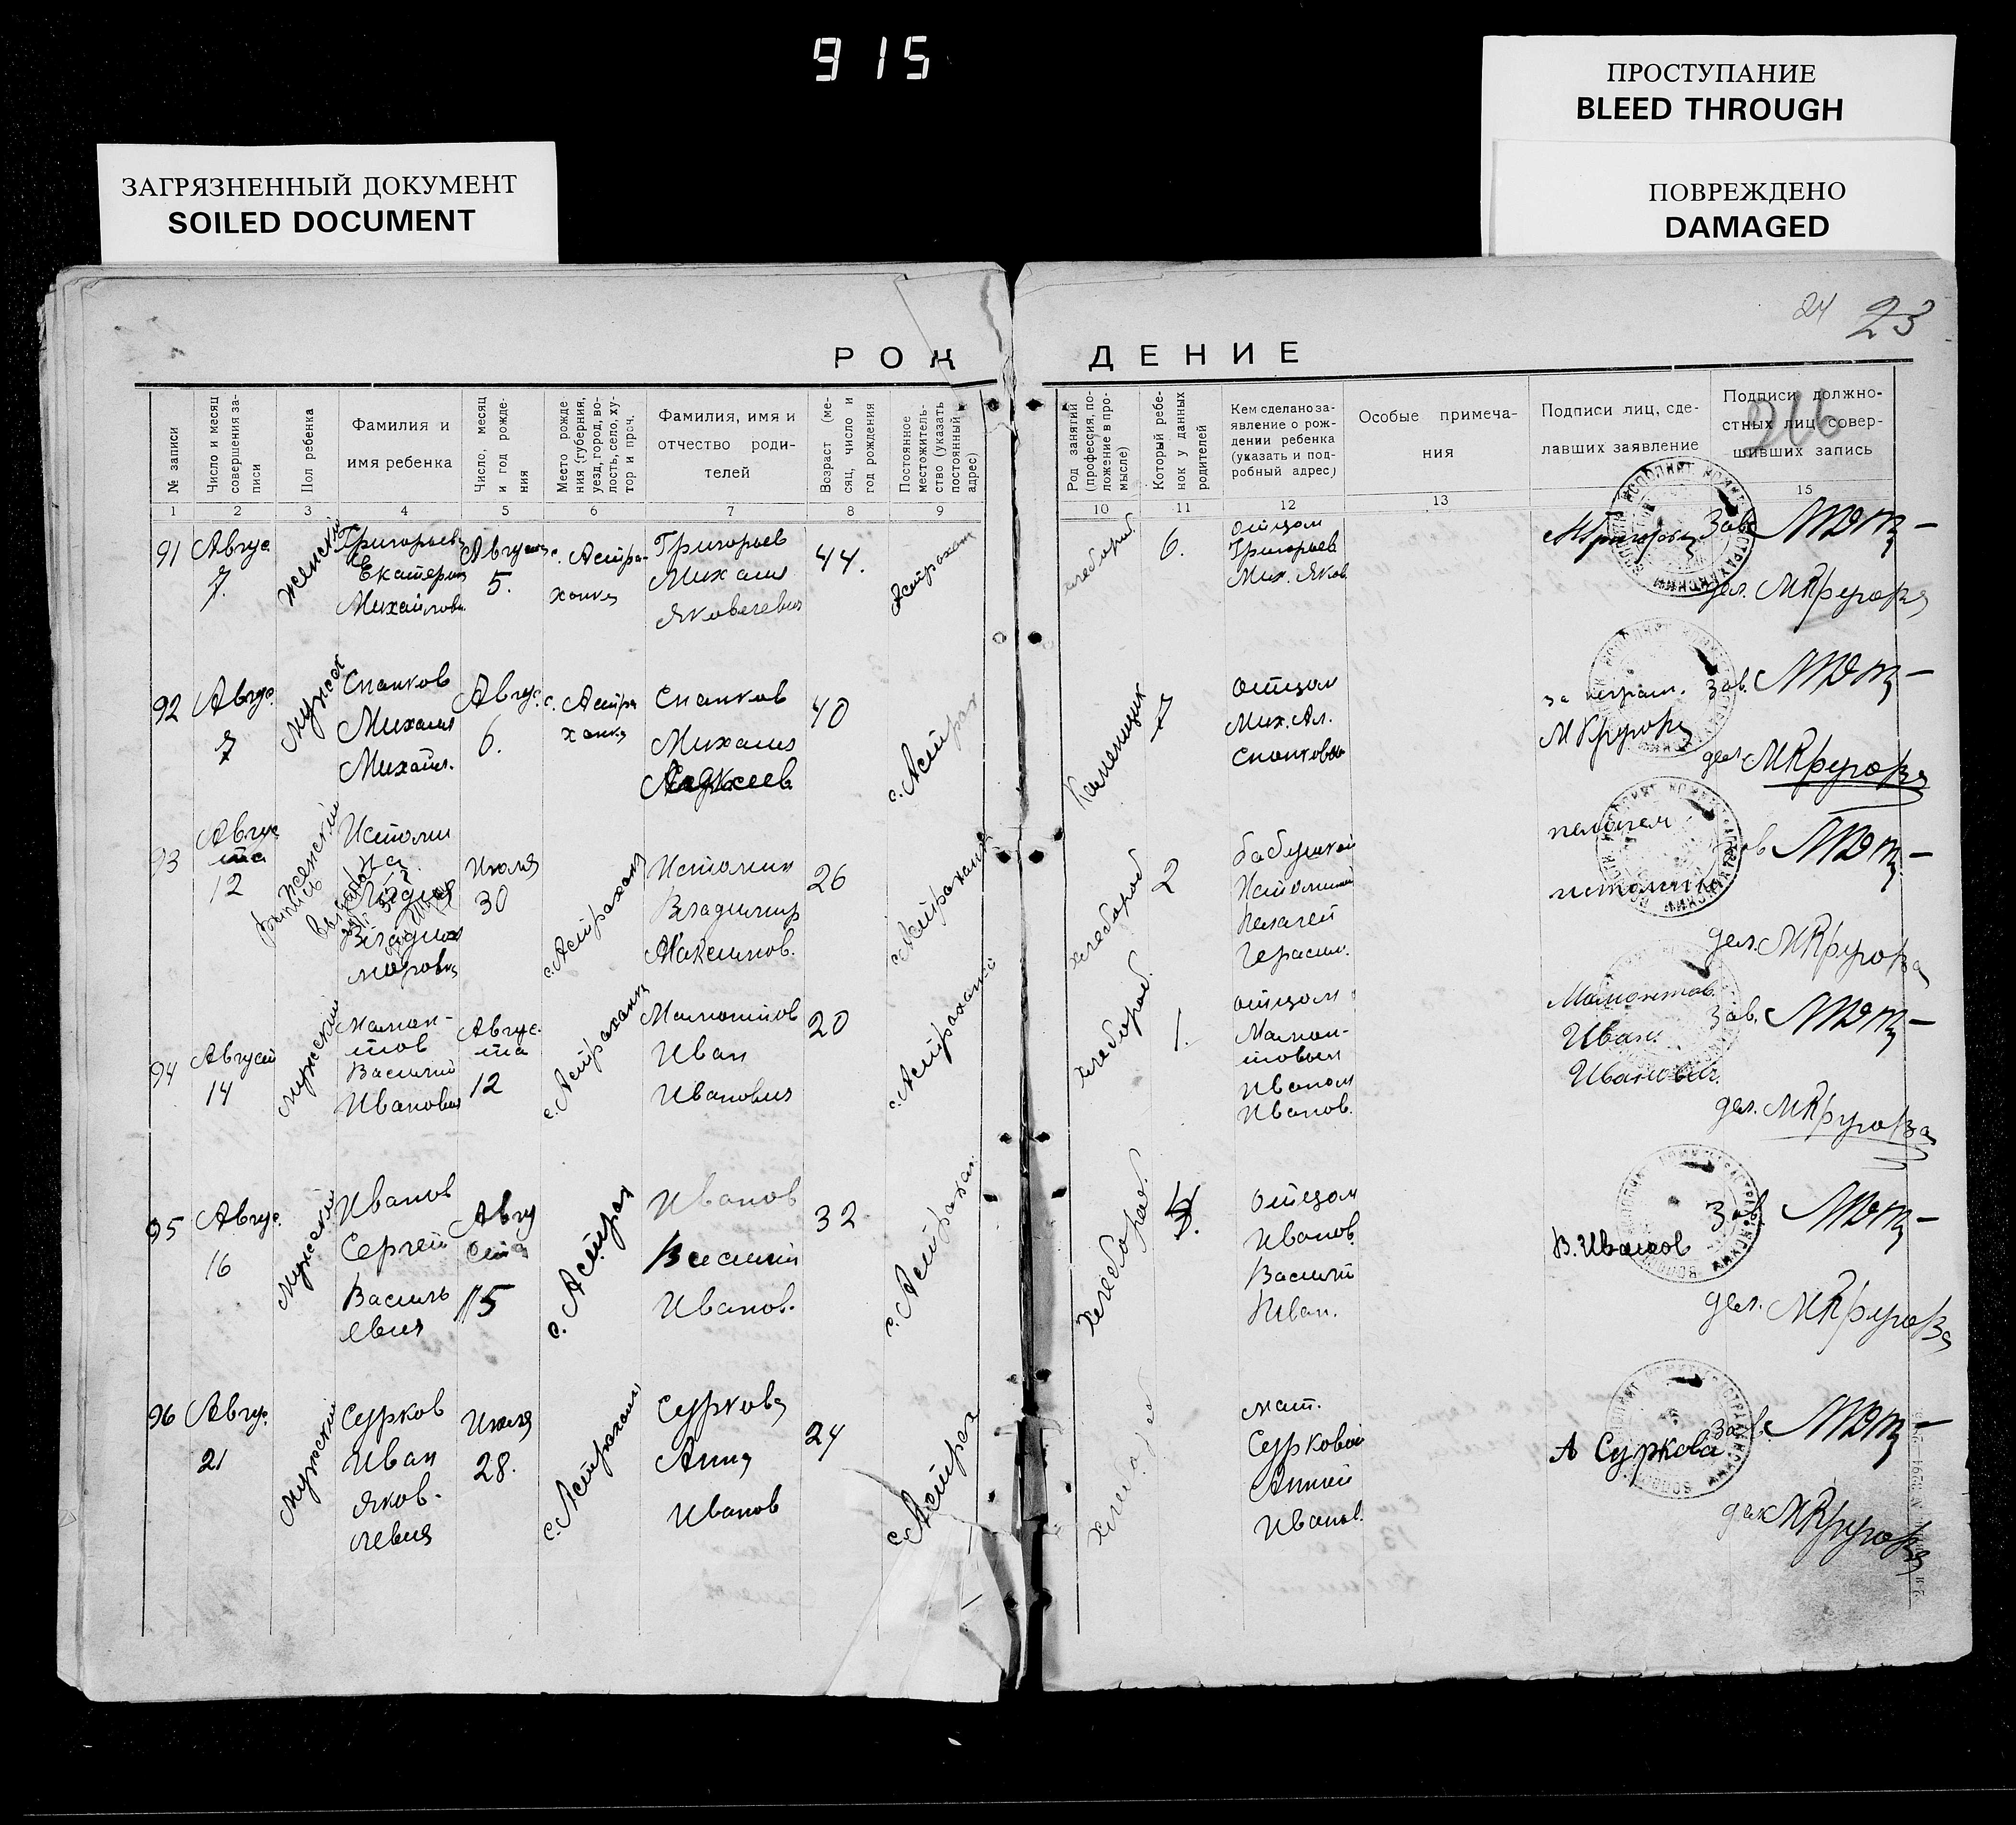 915
ПРОСТУПАНИЕ
BLEED THROUGH
ПОВРЕЖДЕНО
DAMAGED
ЗАГРЯЗНЕННЫЙ ДОКУМЕНТ
SOILED DOCUMENT
24 23
РОЖДЕНИЕ
№ записи
Число и месяц совершения записи
Пол ребенка
Фамилия и
имя ребенка
Число, месяц и год рождения
Место рождения (губерния, уезд, город, волость, село, хутор и проч.
Фамилия, имя и
отчество роди-
телей
Возраст (месяц, число и год рождения
Постоянное местожительство (указать постоянный адрес)
Род занятий (профессия, положение в промысле)
Который ребенок у данных родителей
Кем сделано за-
явление о рож-
дении ребенка
(указать и под-
робный адрес)
Особые примеча-
ния
Подписи лиц, сде-
лавших заявление
Подписи должно-
стных лиц, совер-
шивших запись
1 2 3 4 5 6 7 8 9 10 11 12 13 15
91
Авгус.
7.
женский
Екатерин
Михайловн
5.
с. Астра-
ханка
Григорьев
Михаил
Яковлевич
44.
Астрахан
хлебороб.
6.
Отцом
Григорьев
Мих. Яков
Зав.
дел. МКругова
92
Авгус.
7
мужск
Спанков
Михаил
Михайл.
Авгус.
6.
с. Астра
ханка
Спанков
Михаил
40
с. Астрах
Каменщик
7
Отцом
Мих. Ал.
за неграм.
МКругова
Зав.
дел. МКругова
93
Авгус
та
12
женский
Истомин
Лидия
Владими
ровна
Июля
30
с. Астраханка
Истомин
Владимир
Максимов.
26
с. Астраханка
хлебороб
2
бабушкой
Истоминой
Пелагей
Герасим.
пелагея
истомина
Зав
дел. МКругова
94
Август
14
мужской
Мамон-
тов
Василий
Иванович
Авгус-
та
12
с. Астраханка
Мамонтов
Иван
Иванович
20
с. Астраханка
хлебороб.
1.
Отцом
Мамон-
товым
Иваном
Иванов.
Мамонтов.
Иван
Иванович.
Зав.
дел. МКругова
95
Авгус.
16
мужской
Иванов
Сергей
Василь
евич
Авгу
ста
15
с. Астрах
Иванов
Василий
Иванов.
32
с. Астрахан.
Хлебороб.
Отцом
Иванов.
Василий
Иван.
В. Иванов
Зав
дел. МКругова
96
Авгус.
21
мужской
Сурков
Иван
Яков-
левич
Июля
28.
с. Астрахан
Суркова
Анна
Иванов
24
с. Астрах
мат.
Сурковой
Анной
Иванов.
А Суркова
Зав.
МКругова